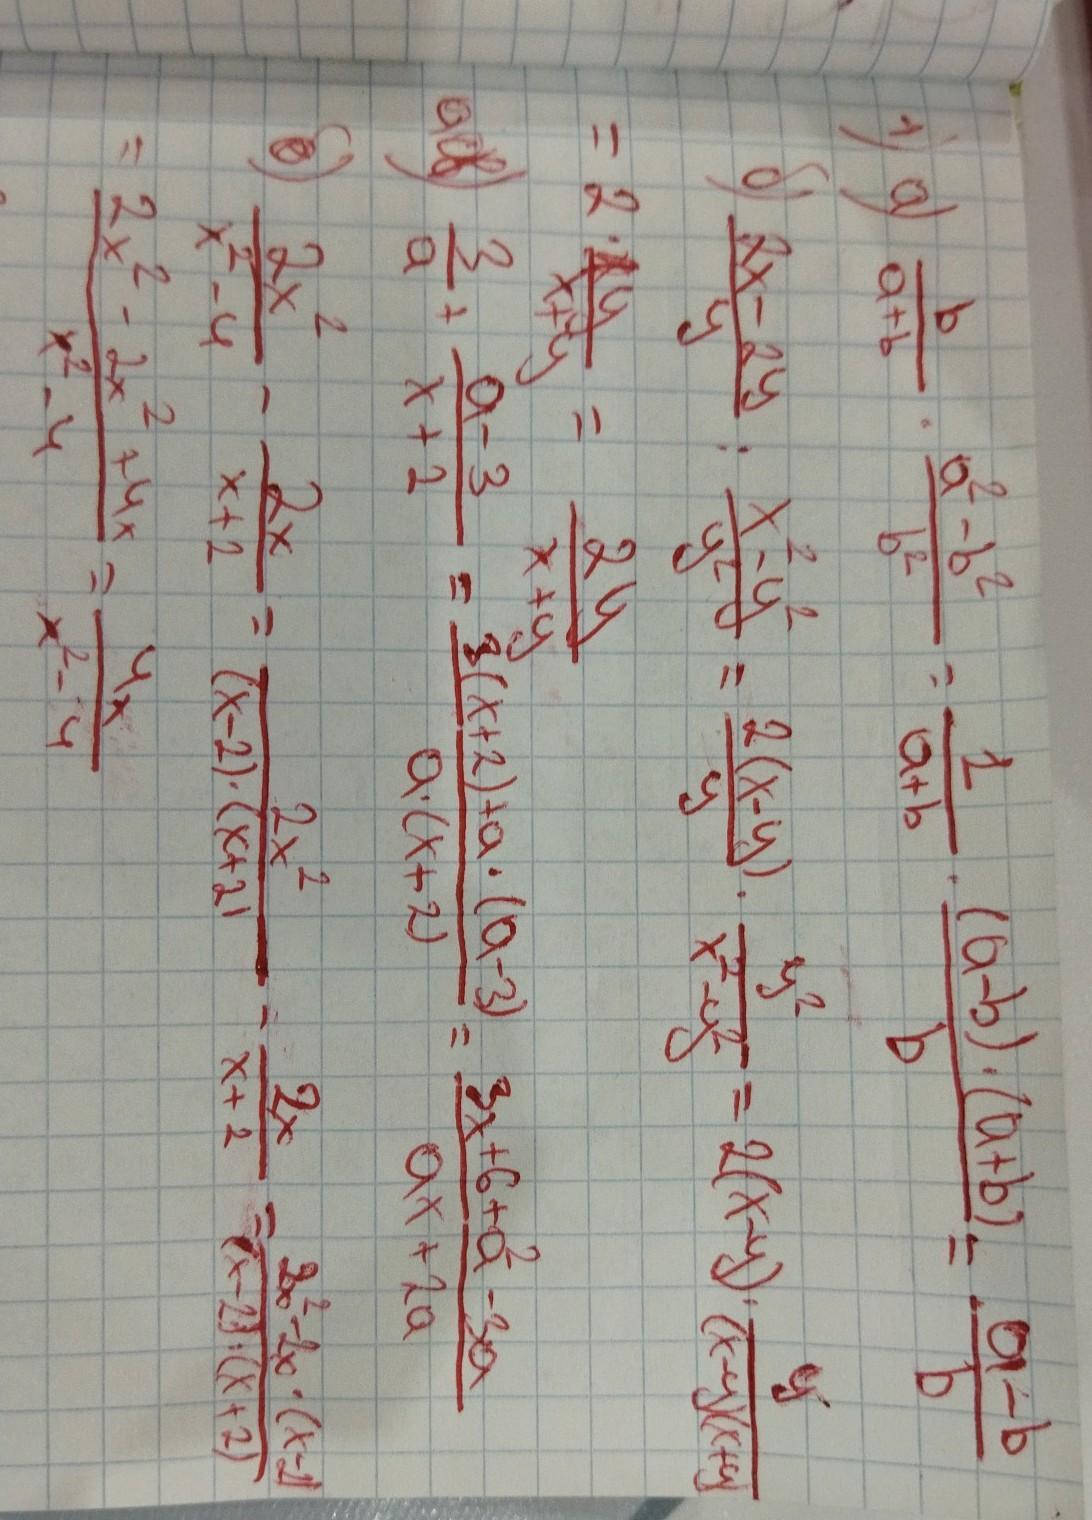 1) а) b/(a+b) · (a²-b²)/b² = 1/(a+b) · ((a-b)·(a+b))/b = (a-b)/b
б) (2x-2y)/y : (x²-y²)/y² = 2(x-y)/y · y²/(x²-y²) = 2(x-y) · y/((x-y)(x+y))
= 2 · y/(x+y) = 2y/(x+y)
3/a + (a-3)/(x+2) = (3(x+2)+a·(a-3))/(a·(x+2)) = (3x+6+a²-3a)/(ax+2a)
б) 2x²/(x²-4) - 2x/(x+2) = 2x²/((x-2)·(x+2)) - 2x/(x+2) = (2x²-2x·(x-2))/((x-2)·(x+2))
= (2x²-2x²+4x)/(x²-4) = 4x/(x²-4)